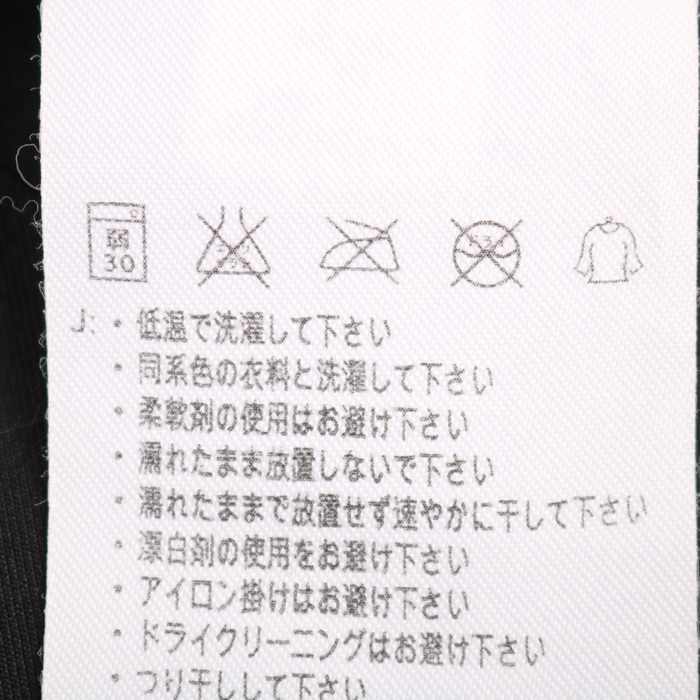 弱
30
エンソ
サラシ
ドライ
J: ・低温で洗濯して下さい
・同系色の衣料と洗濯して下さい
・柔軟剤の使用はお避け下さい
・濡れたまま放置しないで下さい
・濡れたままで放置せず速やかに干して下さい
・漂白剤の使用をお避け下さい
・アイロン掛けはお避け下さい
・ドライクリーニングはお避け下さい
・つり干しして下さい